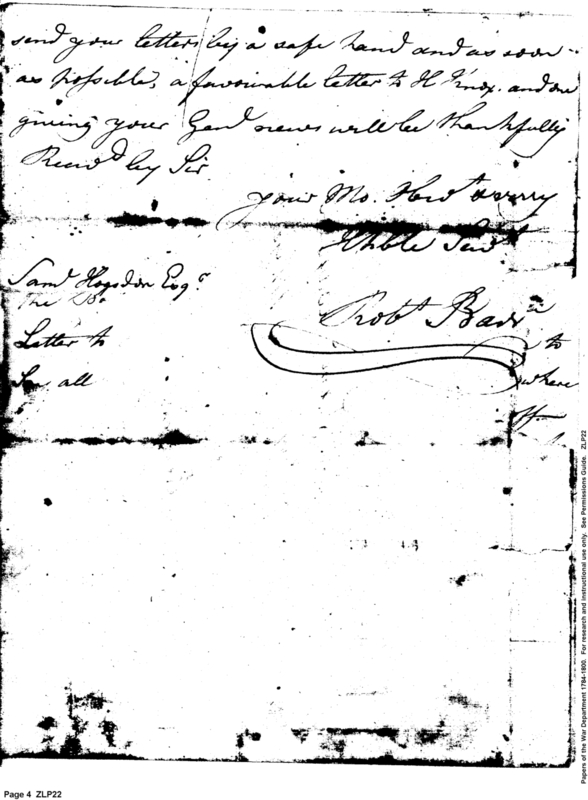 send your letters by a safe hand and as soon
as possible, a favourable letter to H Knox. and one
giving your Gen.l news will be thankfully
Receiv.d by Sir
your Mo. Hew.t & very
Hhble Serv.t
Sam.l Hogsdon Esq.r
The
Rob.t
Letter to
to
In all
where
Papers of the War Department 1784-1800. For research and instructional use only. See Permissions Guide. ZLP22
Page 4 ZLP22